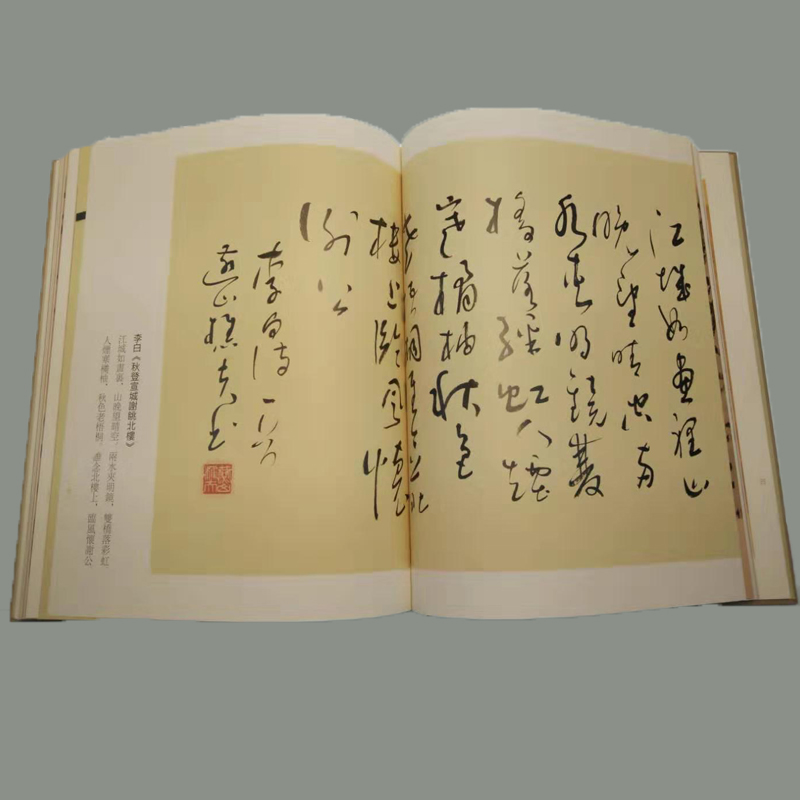 江城如畫裡山
晚望晴空兩
水夾明鏡雙
橋落彩虹人煙
寒橘柚秋色
老梧桐誰念北
樓上臨風懷
謝公
李白詩一首
山樵夫书
李白《秋登宣城謝朓北樓》
江城如畫裏，山晚望晴空，兩水夾明鏡，雙橋落彩虹
人煙寒橘柚，秋色老梧桐，誰念北樓上，臨風懷謝公